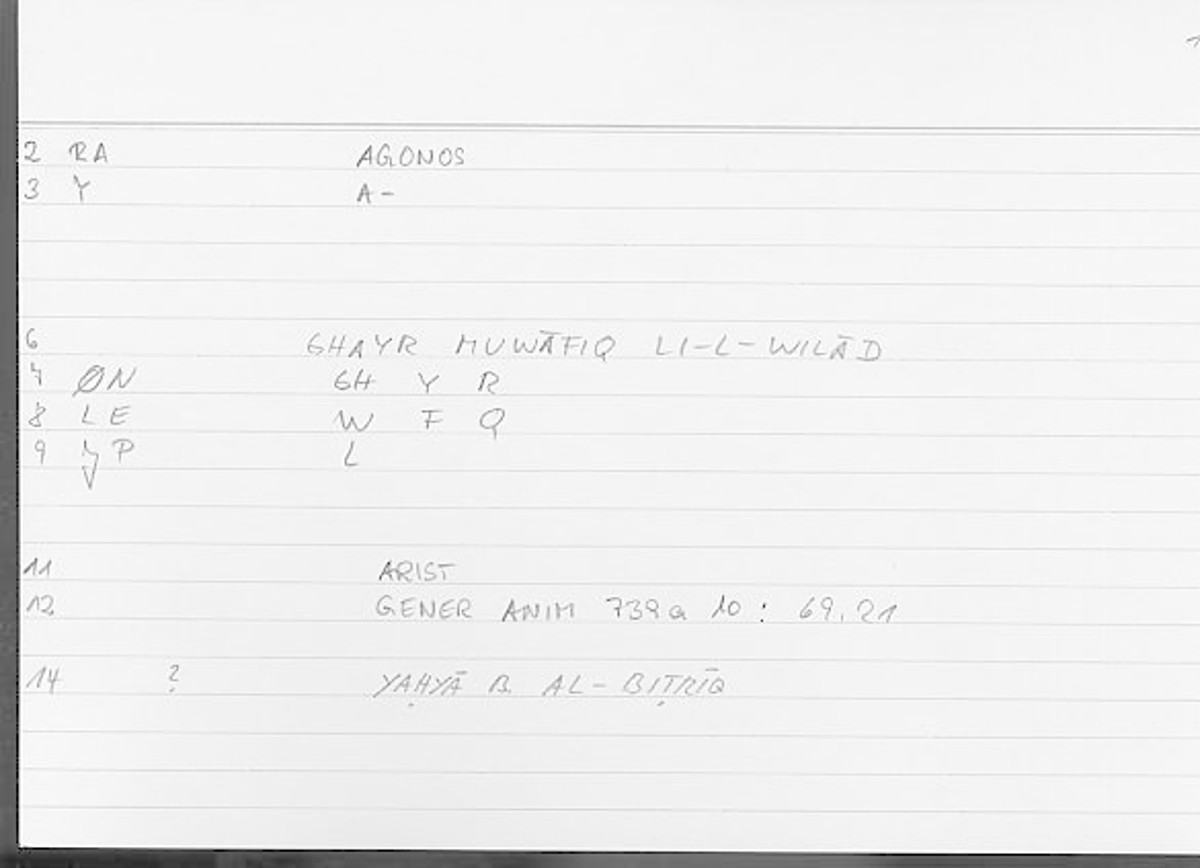 2 RA AGONOS
3 Y A-
6 GHAYR MUWĀFIQ LI-L-WILĀD
7 ØN GH Y R
8 LE W F Q
9 P L
11 ARIST
12 GENER ANIM 739a 10 : 69.21
14 ? YAḤYĀ B. AL-BIṬRĪQ